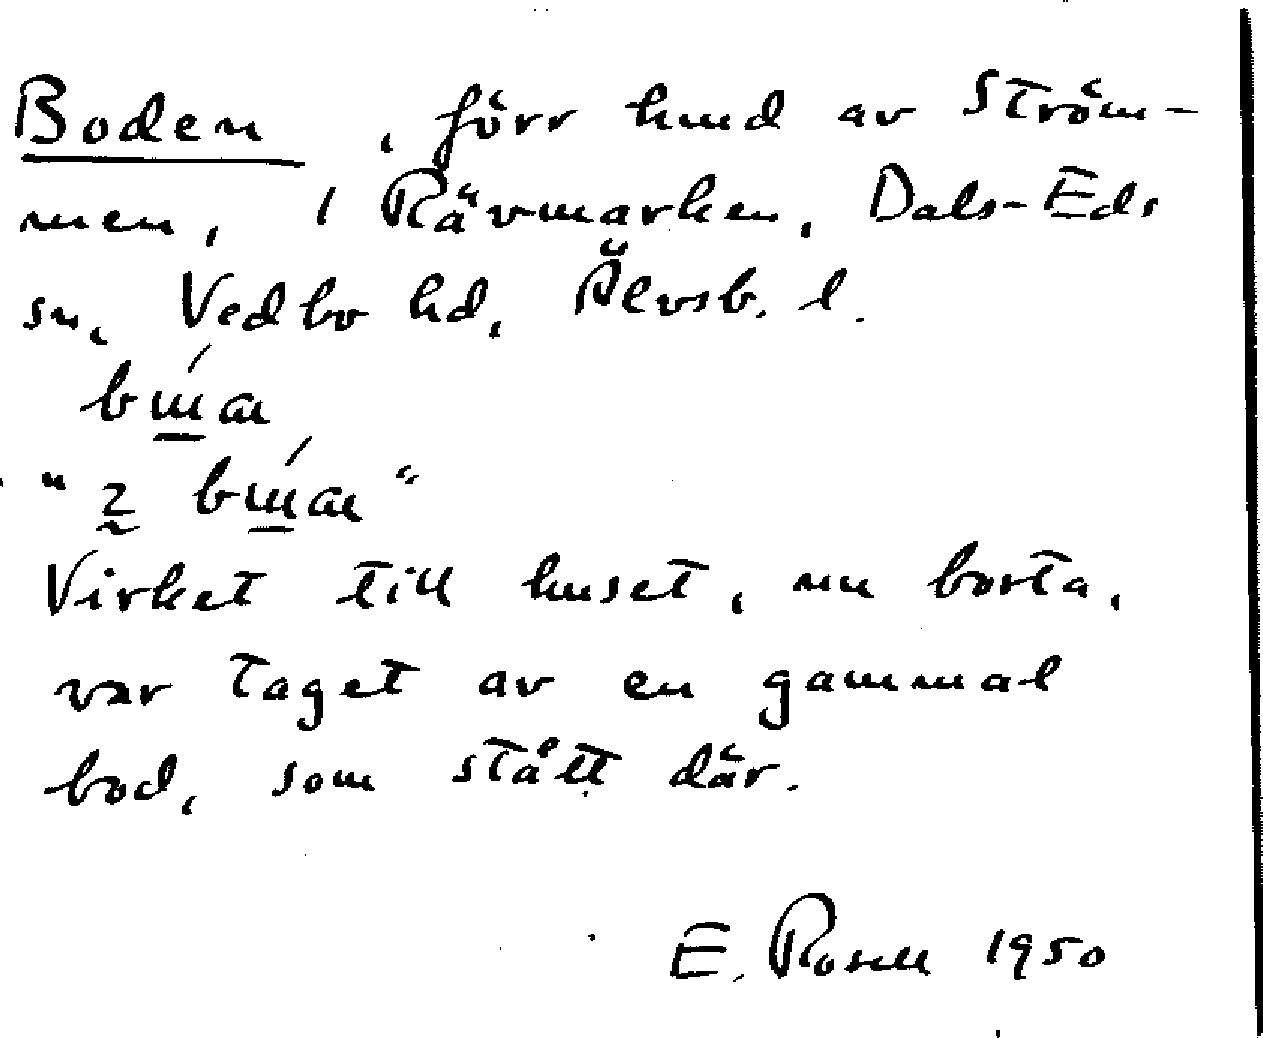 Boden, förr lund av Ström-
men, i Rävmarken, Dals-Eds
sn, Vedbo hd, Älvsb. l.
Virket till huset, nu borta,
var taget av en gammal
bod, som stått där.
E. Rosell 1950